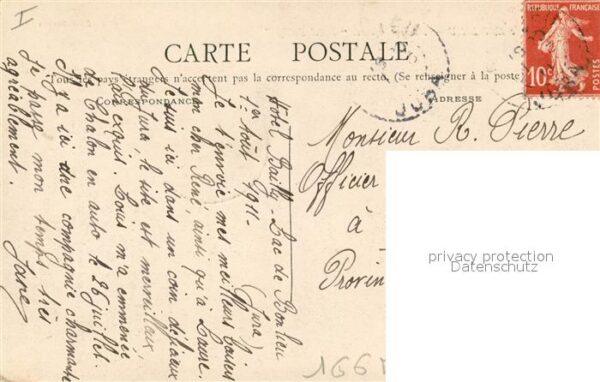 I
CARTE POSTALE
Tous les pays étrangers n'acceptent pas la correspondance au recto. (Se renseigner à la poste)
CORRESPONDANCE
ADRESSE
RÉPUBLIQUE FRANÇAISE
10c
POSTES
JURA
Hôtel Bailly - Lac de Bonlieu
(Jura)
1er Août 1911 -
Je t'envoie mes meilleurs baisers
mon cher René, ainsi qu'à Laure.
Je suis ici dans un coin délicieux
du Jura, le site est merveilleux
et exquis. Louis m'a emmenée
de Chalon en auto le 26 juillet.
Il y a ici une compagnie charmante
je passe mon temps très
agréablement.
Jane
Monsieur R. Pierre
Officier
à
Provin
privacy protection
Datenschutz
166